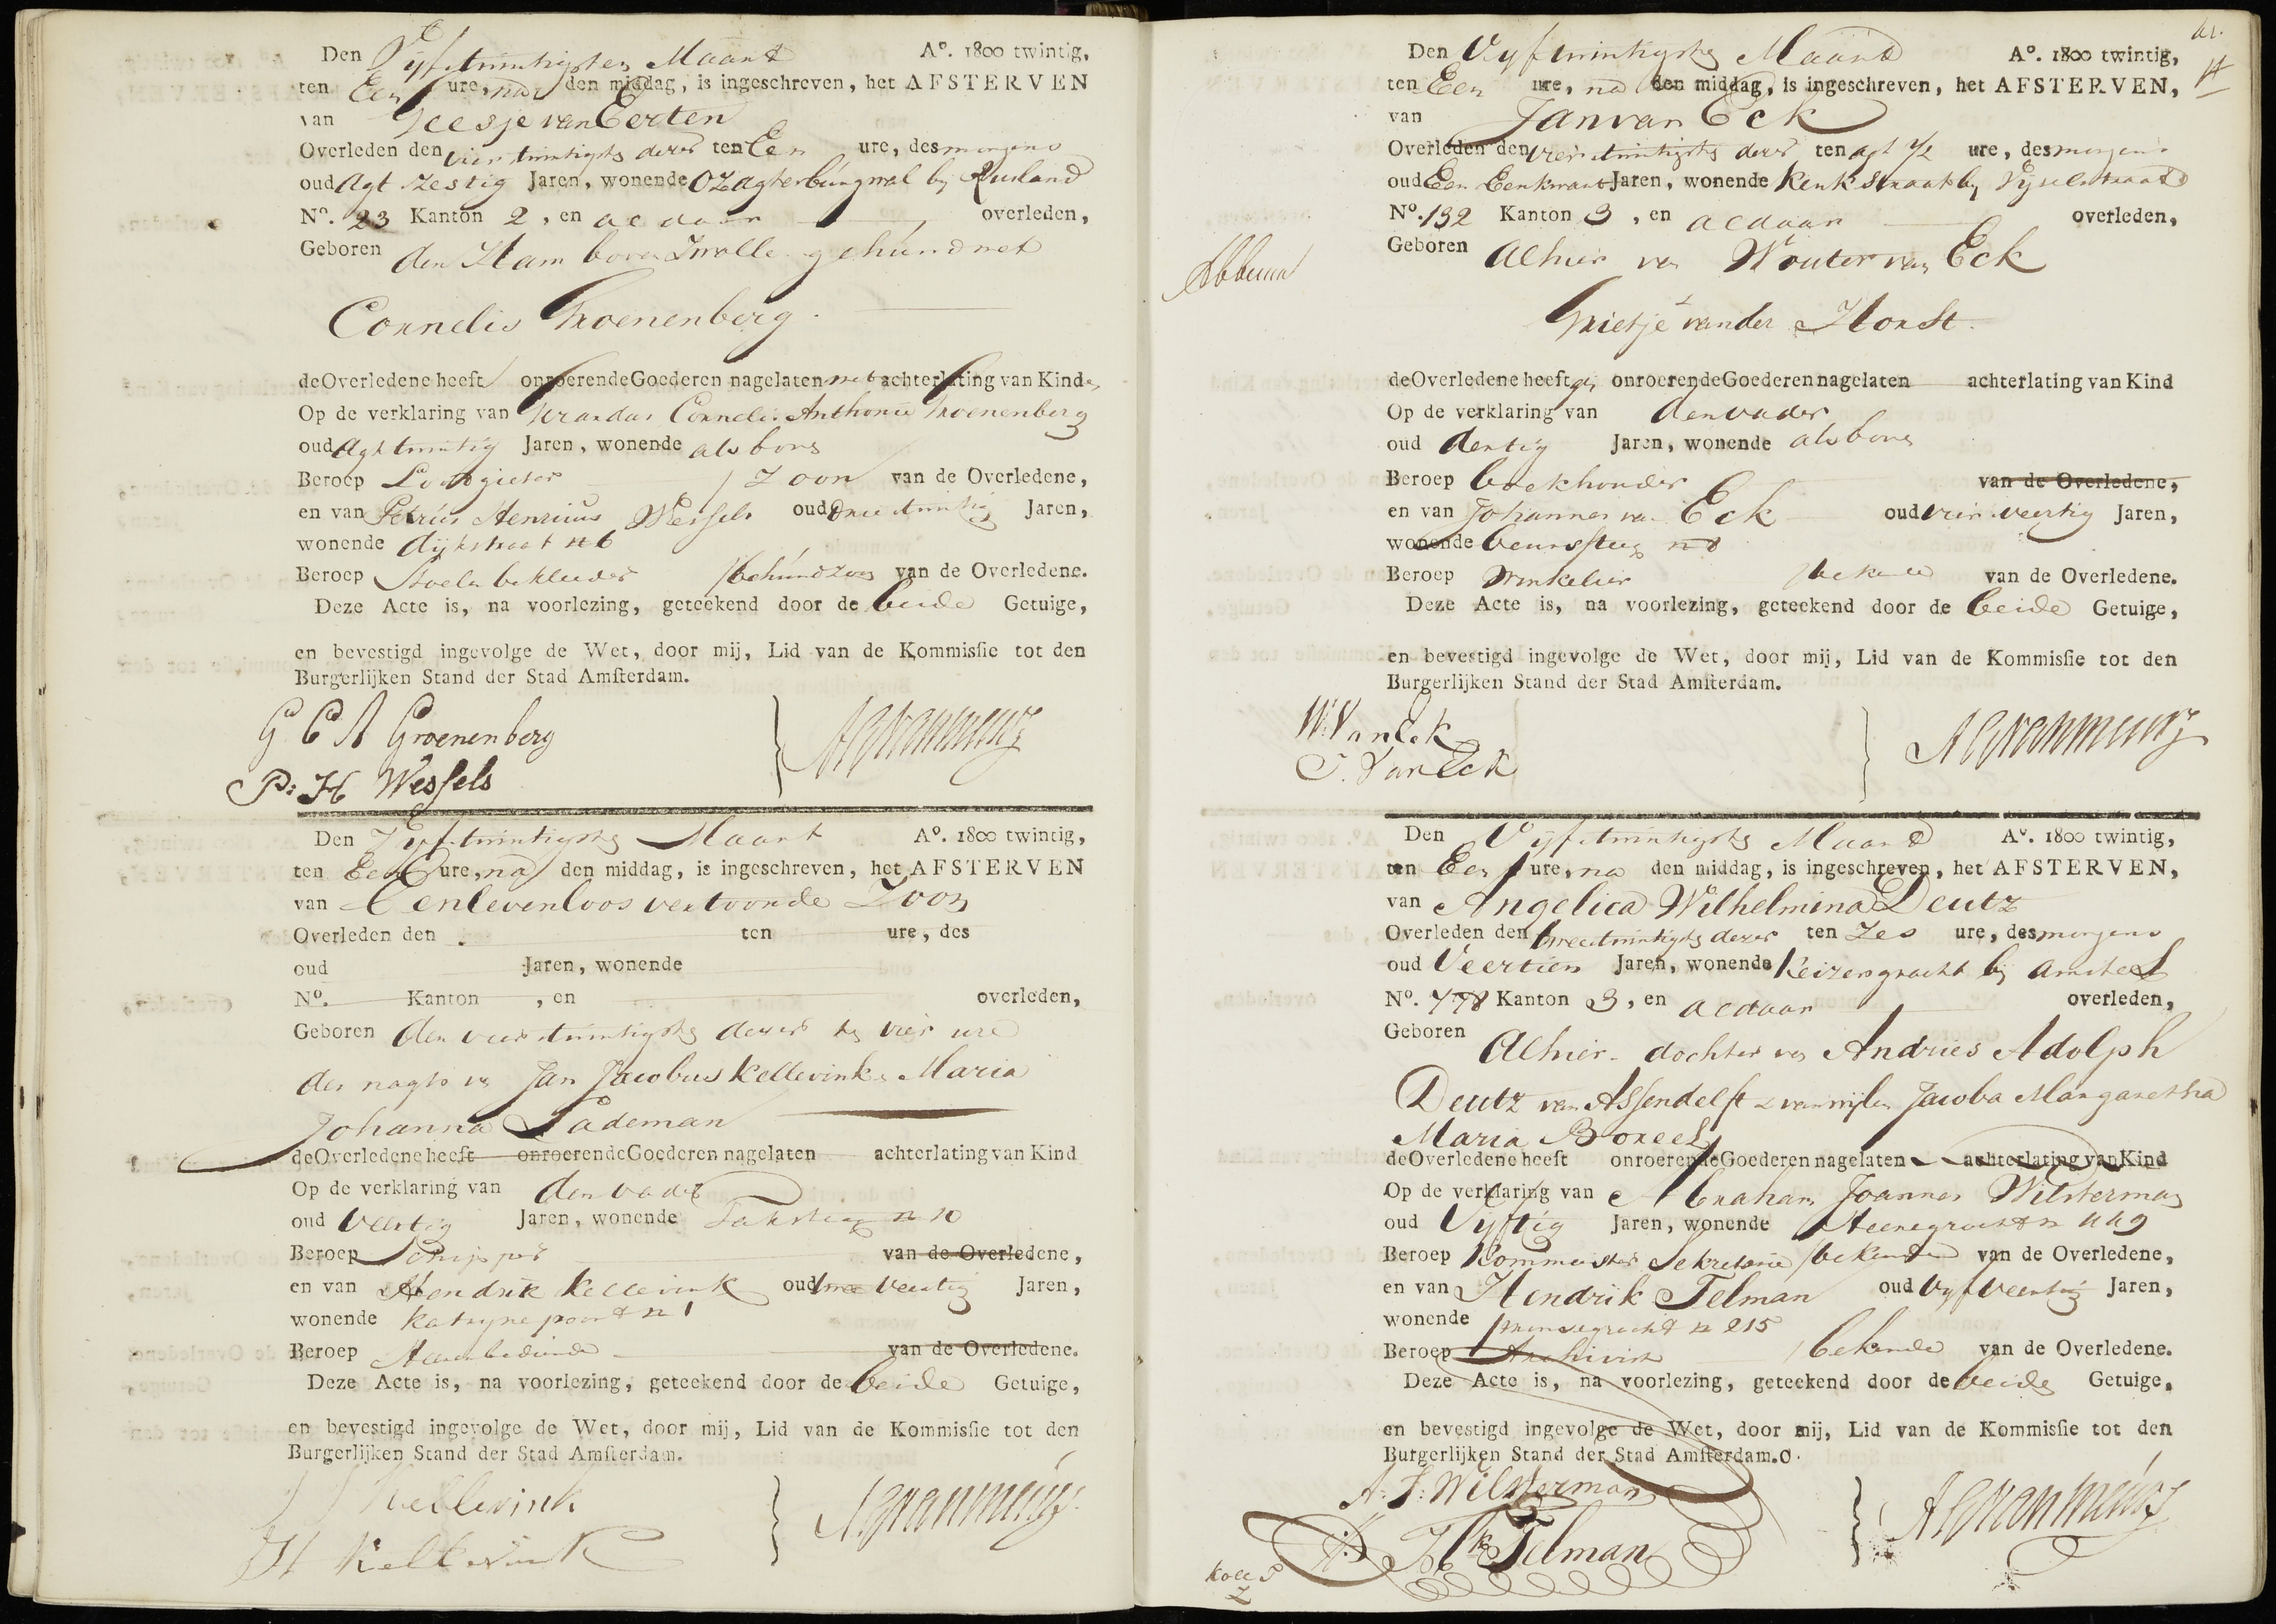 Den Vijfentwintigsten Maart A°. 1800 twintig,
ten Een ure, na den middag, is ingeschreven, het AFSTERVEN
van Geesje van Eerten
Overleden den vierentwintigste dezer ten Een ure, des morgens
oud Agt Zestig Jaren, wonende OZ agterburgwal bij Rusland
N°. 23 Kanton 2, en aldaar overleden,
Geboren den Ham boven Zwolle gehuwd met
Cornelis Groenenberg.
de Overledene heeft onroerende Goederen nagelaten met achterlating van Kind
Op de verklaring van Gerardus Cornelis Anthonie Groenenberg
oud Agttwintig Jaren, wonende als boven
Beroep Loodgieter Zoon van de Overledene,
en van Petrus Henricus Wessels oud Drie twintig Jaren,
wonende dijkstraat n 6
Beroep Stoelebekleeder behuwdzoon van de Overledene.
Deze Acte is, na voorlezing, geteekend door de beide Getuige,
en bevestigd ingevolge de Wet, door mij, Lid van de Kommisſie tot den
Burgerlijken Stand der Stad Amſterdam.
G C A Groenenberg
P: H Wessels
Den Vijfentwintigste Maart A°. 1800 twintig,
ten Een ure, na den middag, is ingeschreven, het AFSTERVEN
van Een levenloos vertoonde Zoon
Overleden den ten ure, des
oud Jaren, wonende
N°. Kanton , en overleden,
Geboren den vierentwintigste dezer te vier ure
des nagts van Jan Jacobus Kellevink & Maria
Johanna Lademan
de Overledene heeft onroerende Goederen nagelaten achterlating van Kind
Op de verklaring van den vader
oud Veertig Jaren, wonende Taksteeg n 10
Beroep Schipper van de Overledene,
en van Hendrik Kellevink oud twee Veertig Jaren,
wonende Katrijne poort n 1
Beroep van de Overledene.
Deze Acte is, na voorlezing, geteekend door de beide Getuige,
en bevestigd ingevolge de Wet, door mij, Lid van de Kommisſie tot den
Burgerlijken Stand der Stad Amſterdam.
J J Kellevink
H Kellevink
Den Vijfentwintigste Maart A°. 1800 twintig,
ten Een ure, na den middag, is ingeschreven, het AFSTERVEN,
van Jan van Eck
Overleden den vierentwintigste dezer ten agt ½ ure, des morgens
oud Een Eenkwart Jaren, wonende Kerkstraat bij Vijzelstraat
N°. 132 Kanton 3, en aldaar overleden,
Geboren Alhier van Wouter van Eck
&
Grietje van der Horst.
de Overledene heeft gen onroerende Goederen nagelaten achterlating van Kind
Op de verklaring van den vader
oud dertig Jaren, wonende als boven
Beroep boekhouder van de Overledene,
en van Johannes van Eck oud vier veertig Jaren,
wonende beurssteeg n 8
Beroep Winkelier bekende van de Overledene.
Deze Acte is, na voorlezing, geteekend door de beide Getuige,
en bevestigd ingevolge de Wet, door mij, Lid van de Kommisſie tot den
Burgerlijken Stand der Stad Amſterdam.
W. Van Eck
J. Van Eck
Den Vijfentwintigste Maart A°. 1800 twintig,
ten Een ure, na den middag, is ingeschreven, het AFSTERVEN,
van Angelica Wilhelmina Deutz
Overleden den tweeentwintigste dezer ten Zes ure, des morgens
oud Veertien Jaren, wonende Keizersgracht bij Amstel
N°. 778 Kanton 3, en aldaar overleden,
Geboren Alhier dochter van Andries Adolph
Deutz van Assendelft & van wijlen Jacoba Margaretha
Maria Boreel
de Overledene heeft onroerende Goederen nagelaten achterlating van Kind
Op de verklaring van Abraham Joannes Wilsterman
oud Vijftig Jaren, wonende Heeregracht n 449
Beroep Kommester Sekretarie bekende van de Overledene,
en van Hendrik Telman oud Vijf Veertig Jaren,
wonende Prinsegracht n 215
Beroep Archivist bekende van de Overledene.
Deze Acte is, na voorlezing, geteekend door de beide Getuige,
en bevestigd ingevolge de Wet, door mij, Lid van de Kommisſie tot den
Burgerlijken Stand der Stad Amſterdam.
A: J: Wilsterman
Hk Telman